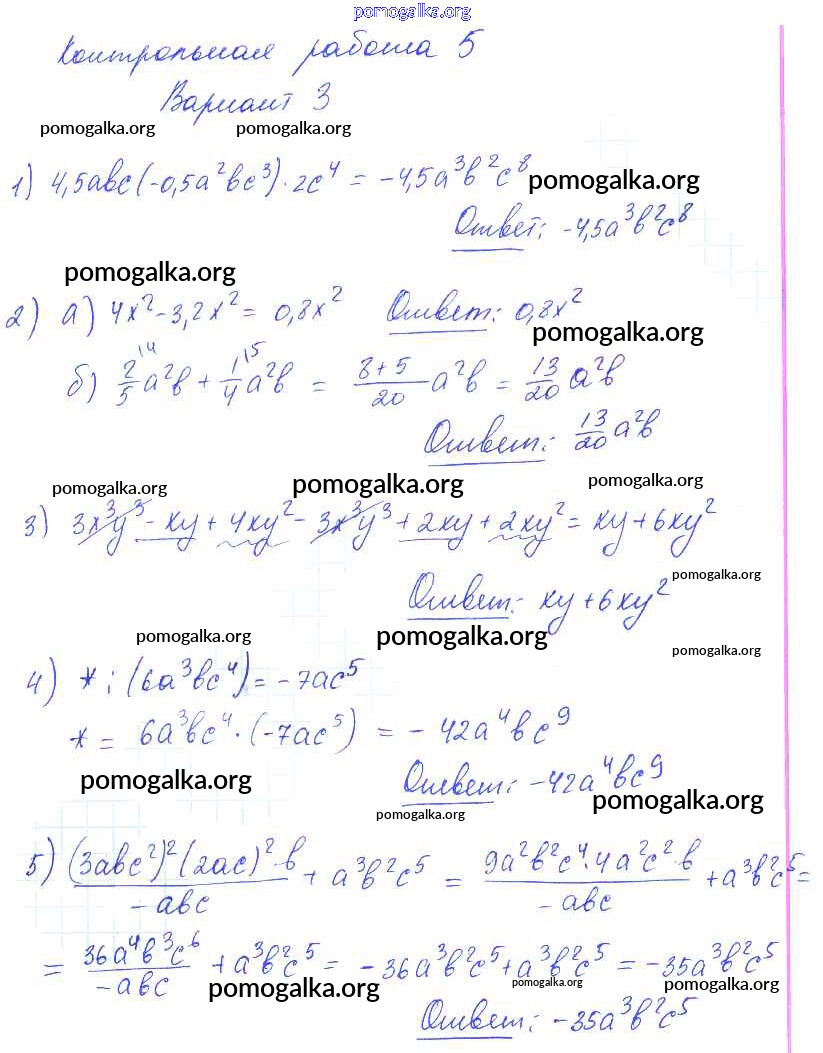 pomogalka.org
Контрольная работа 5
Вариант 3
pomogalka.org pomogalka.org
1) 4,5abc(-0,5a²bc³)·2c⁴ = -4,5a³b²c⁸ pomogalka.org
Ответ: -4,5a³b²c⁸
pomogalka.org
2) а) 4x²-3,2x² = 0,8x² Ответ: 0,8x²
pomogalka.org
б) 2/5\4 a²b + 1/4\5 a²b = (8+5)/20 a²b = 13/20 a²b
Ответ: 13/20 a²b
pomogalka.org pomogalka.org pomogalka.org
3) 3x³y³ - xy + 4xy² - 3x³y³ + 2xy + 2xy² = xy + 6xy²
pomogalka.org
Ответ: xy + 6xy²
pomogalka.org pomogalka.org pomogalka.org
4) * : (6a³bc⁴) = -7ac⁵
* = 6a³bc⁴·(-7ac⁵) = -42a⁴bc⁹
pomogalka.org Ответ: -42a⁴bc⁹
pomogalka.org pomogalka.org
5) (3abc²)²(2ac)²·b/-abc + a³b²c⁵ = 9a²b²c⁴·4a²c²·b/-abc + a³b²c⁵ =
= 36a⁴b³c⁶/-abc + a³b²c⁵ = -36a³b²c⁵ + a³b²c⁵ = -35a³b²c⁵
pomogalka.org pomogalka.org pomogalka.org
Ответ: -35a³b²c⁵